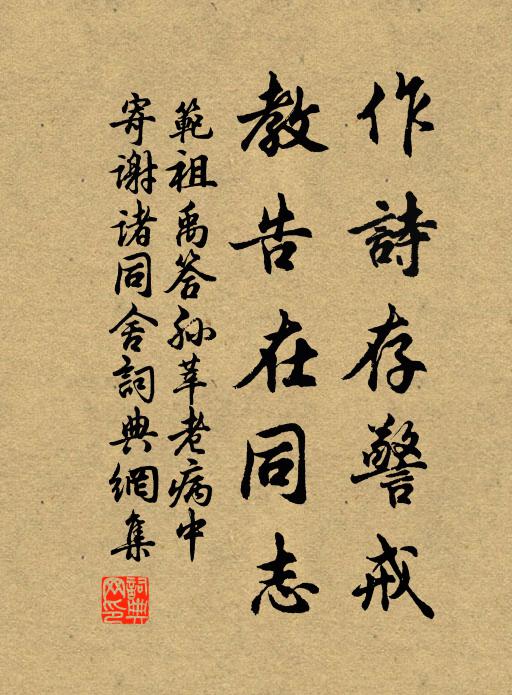 作詩存警戒
教告在同志
範祖禹答孙莘老病中
寄谢诸同舍詞典網集
詞典網印